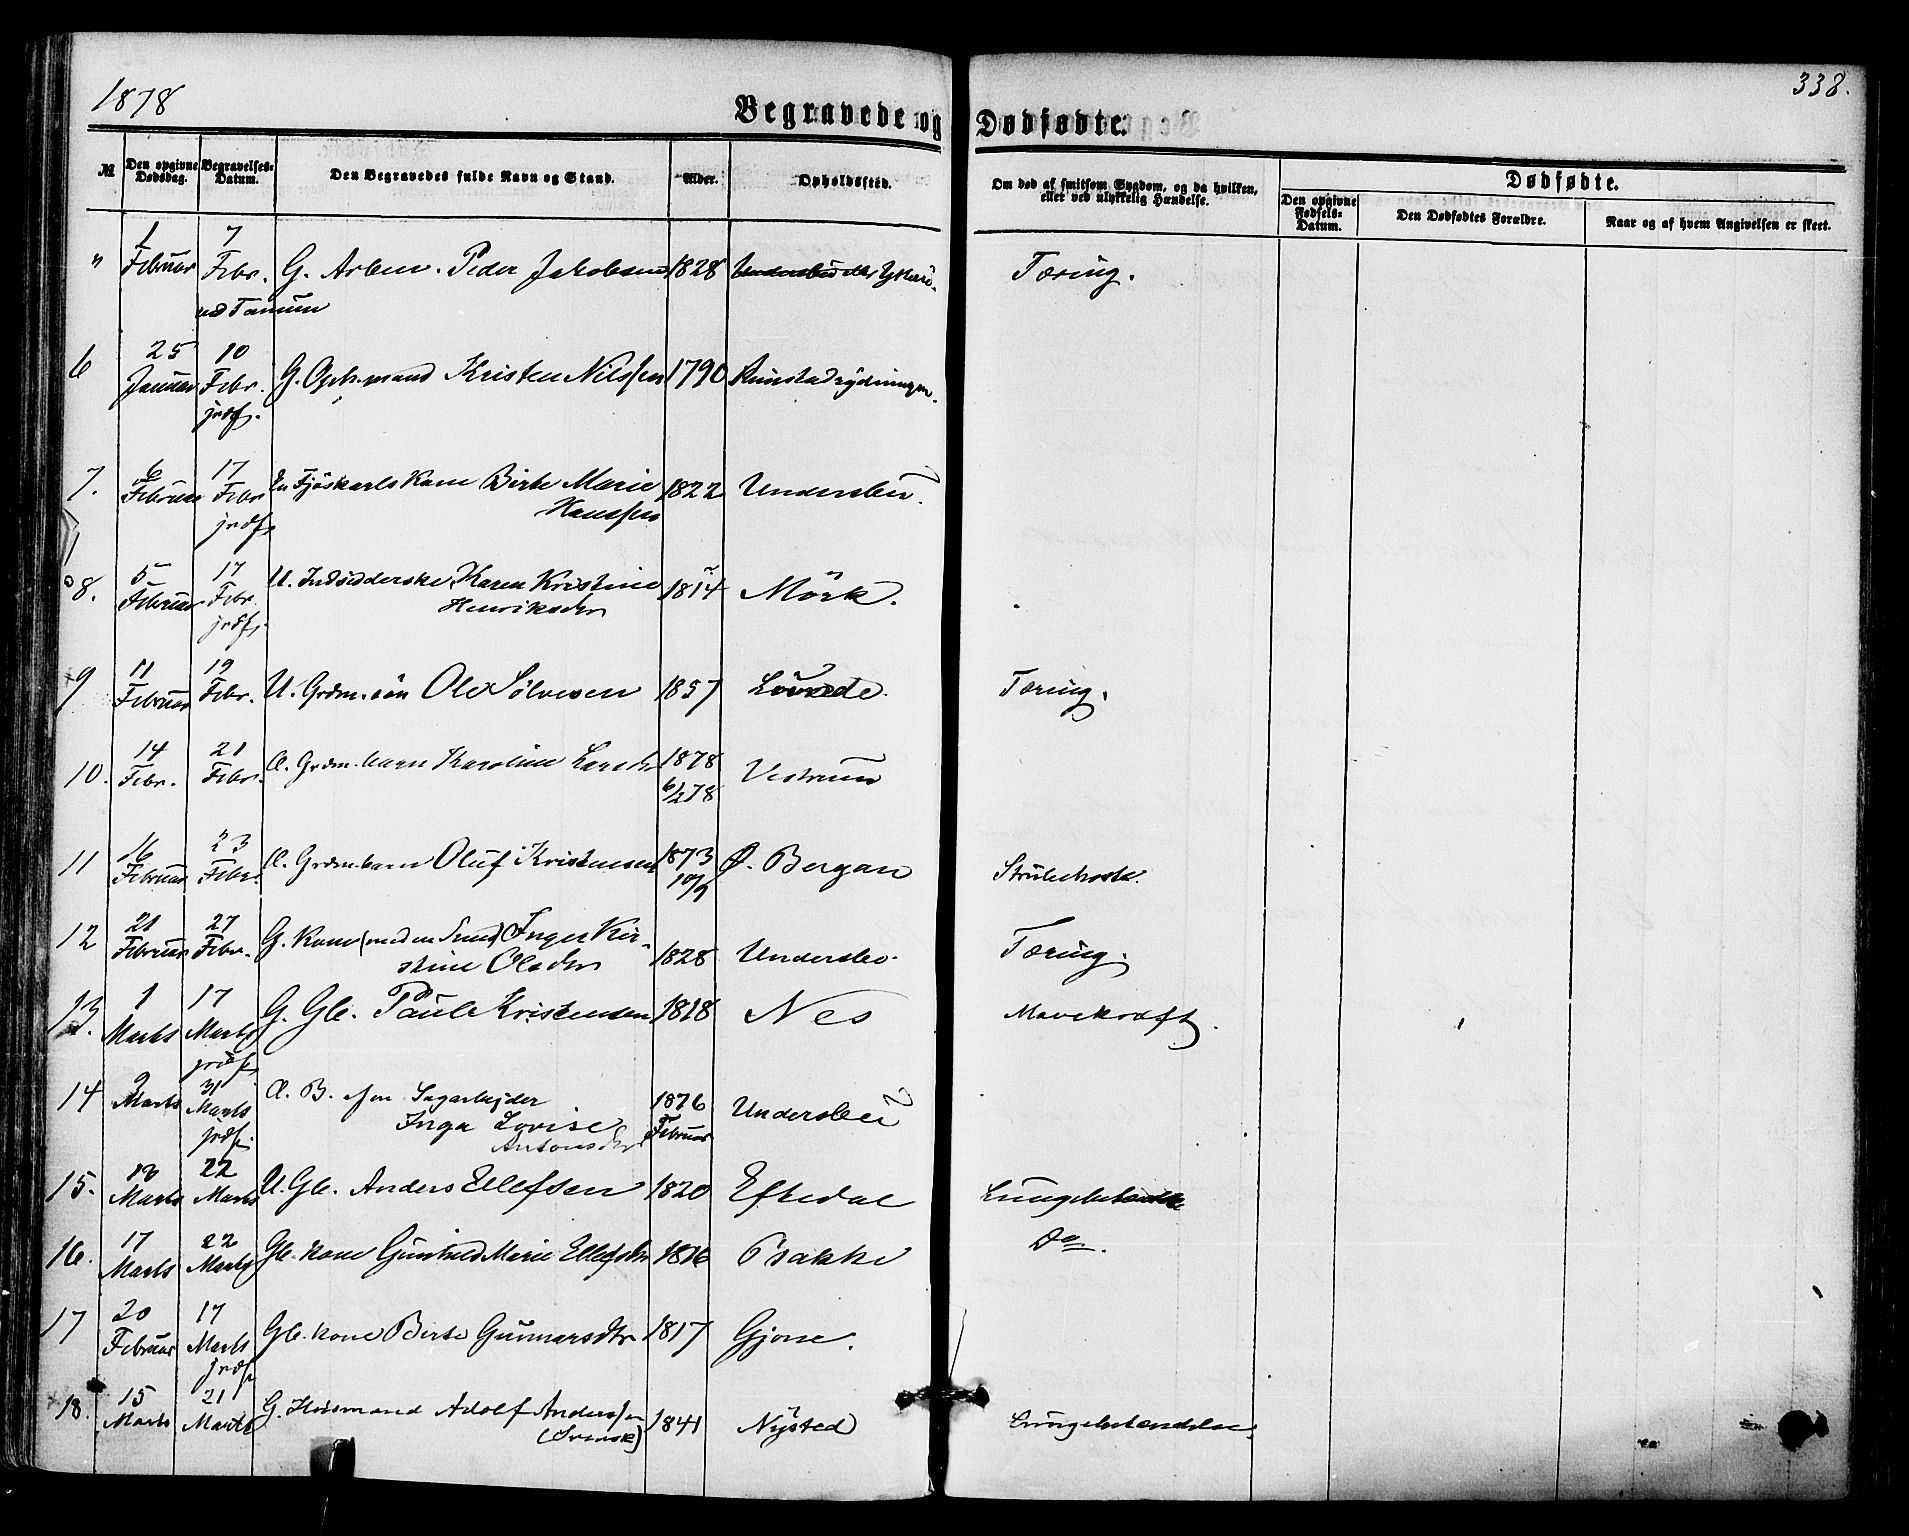 1878
338.
Begravede og Dødfødte.
№
Den opgivne Dødsdag.
Begravelses-Datum.
Den Begravedes fulde Navn og Stand.
Alder.
Opholdssted.
Om død af smitsom Sygdom, og da hvilken, eller ved ulykkelig Hændelse.
Dødfødte.
Den opgivne Fødsels-Datum.
Den Dødfødtes Forældre.
Naar og af hvem Angivelsen er skeet.
" 1 Februar 7 Febr. G. Arbm. Peder Jakobsen 1828 Tæring.
ved Tanum
6 25 Januar 10 Febr. jrdf. G. mand Kristen Nilssen 1790
7. 6 Februar 17 Febr jrdf. En Fjøskarls Kone Birte Marie 1822 Undersbu.
Hanssen
8. 5 Februar 17 Febr. jrdf. U. Indsidderske Karen Kristine 1814 Mörk.
Henriksdr
9 11 Februar 19 Febr. U. Grdm. sön Ole Sölvesen 1857 Tæring.
10. 14 Febr. 21 Febr. Æ. Grdm. barn Karoline Larsdr 1878 6/2 78 Vestrum
11 16 Februar 23 Febr. Æ. Grdm. barn Oluf Kristensen 1873 10/9 Ø. Bergan Strubehoste.
12 21 Februar 27 Febr. G. Kone (med en Smed) Inger Kir-
stine Olsdr 1828 Undersbo. Tæring.
13. 1 Marts 17 Marts jrdf. G. Gb. Paul Kristensen 1818 Nes Mavekræft.
14 9 Marts 31 Marts jrdf. Æ. B. af en Sagarbejder
Inga Lovise 1876 Februar Undersbu
Antonsdr
15. 13 Marts 22 Marts U. Gb. Anders Ellefsen 1820 Eftedal Lungebetændelse
16. 17 Marts 22 Marts Gb. kone Gunhild Marie Ellefsdr 1816 Prakke Do.
17 20 Februar 17 Marts jrdf. Gb. kone Berte Gunnarsdtr 1817 Gjone.
18. 15 Marts 21 Marts G. Husmand Adolf Anderssen 1841 Nysted Lungebetændelse.
(Svensk)